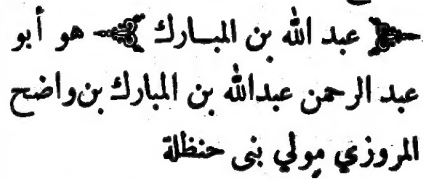 عبد الله بن المبارك هو أبو
عبد الرحمن عبدالله بن المبارك بن واضح
المروزي مولي بنى حنظلة